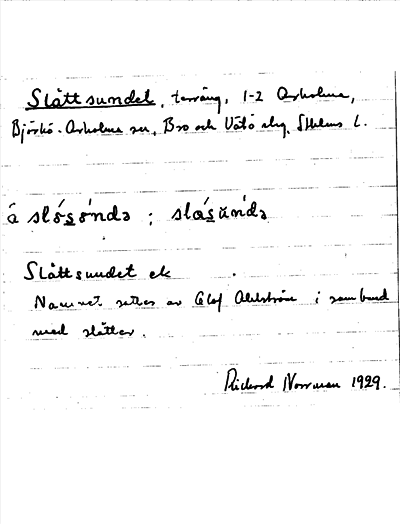 Slåttsundet, terräng, 1-2 Arholma,
Björkö-Arholma sn, Bro och Vätö skg, Sthlms l.
á slósóndə ; slásúndə
Slåttsundet ek
Namnet sättes av Olof Ahlström i samband
med slåtter.
Rickard Norrman 1929.